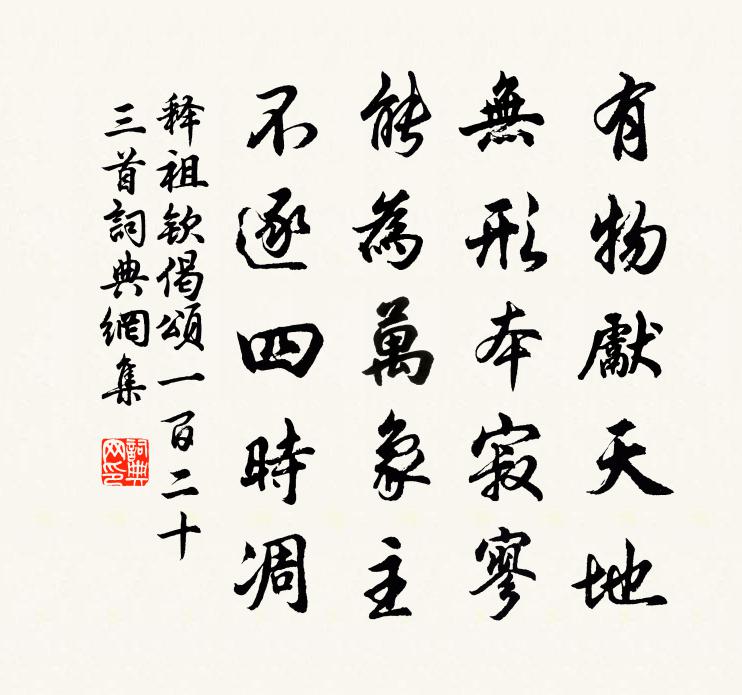 有物獻天地
無形本寂寥
能為萬象主
不逐四時凋
释祖钦偈頌一百二十
三首詞典網集
詞典網印